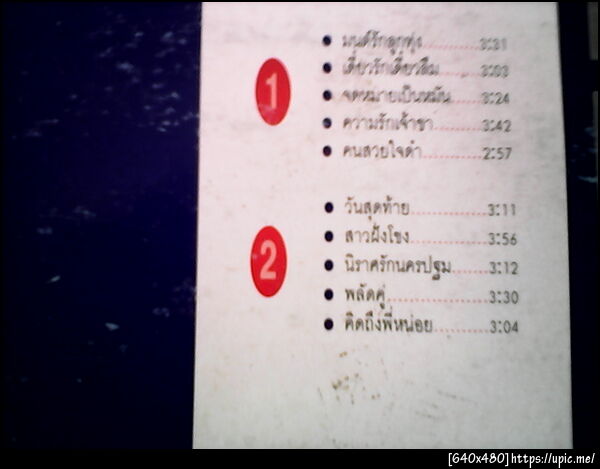 1
มนต์รักลูกทุ่ง
เดี๋ยวรักเดี๋ยวลืม
จดหมายเป็นหมัน 3:24
ความรักเจ้าขา 3:42
คนสวยใจดำ 2:57
2
วันสุดท้าย 3:11
สาวฝั่งโขง 3:56
นิราศรักนครปฐม 3:12
พลัดคู่ 3:30
คิดถึงพี่หน่อย 3:04
[640x480]https://upic.me/